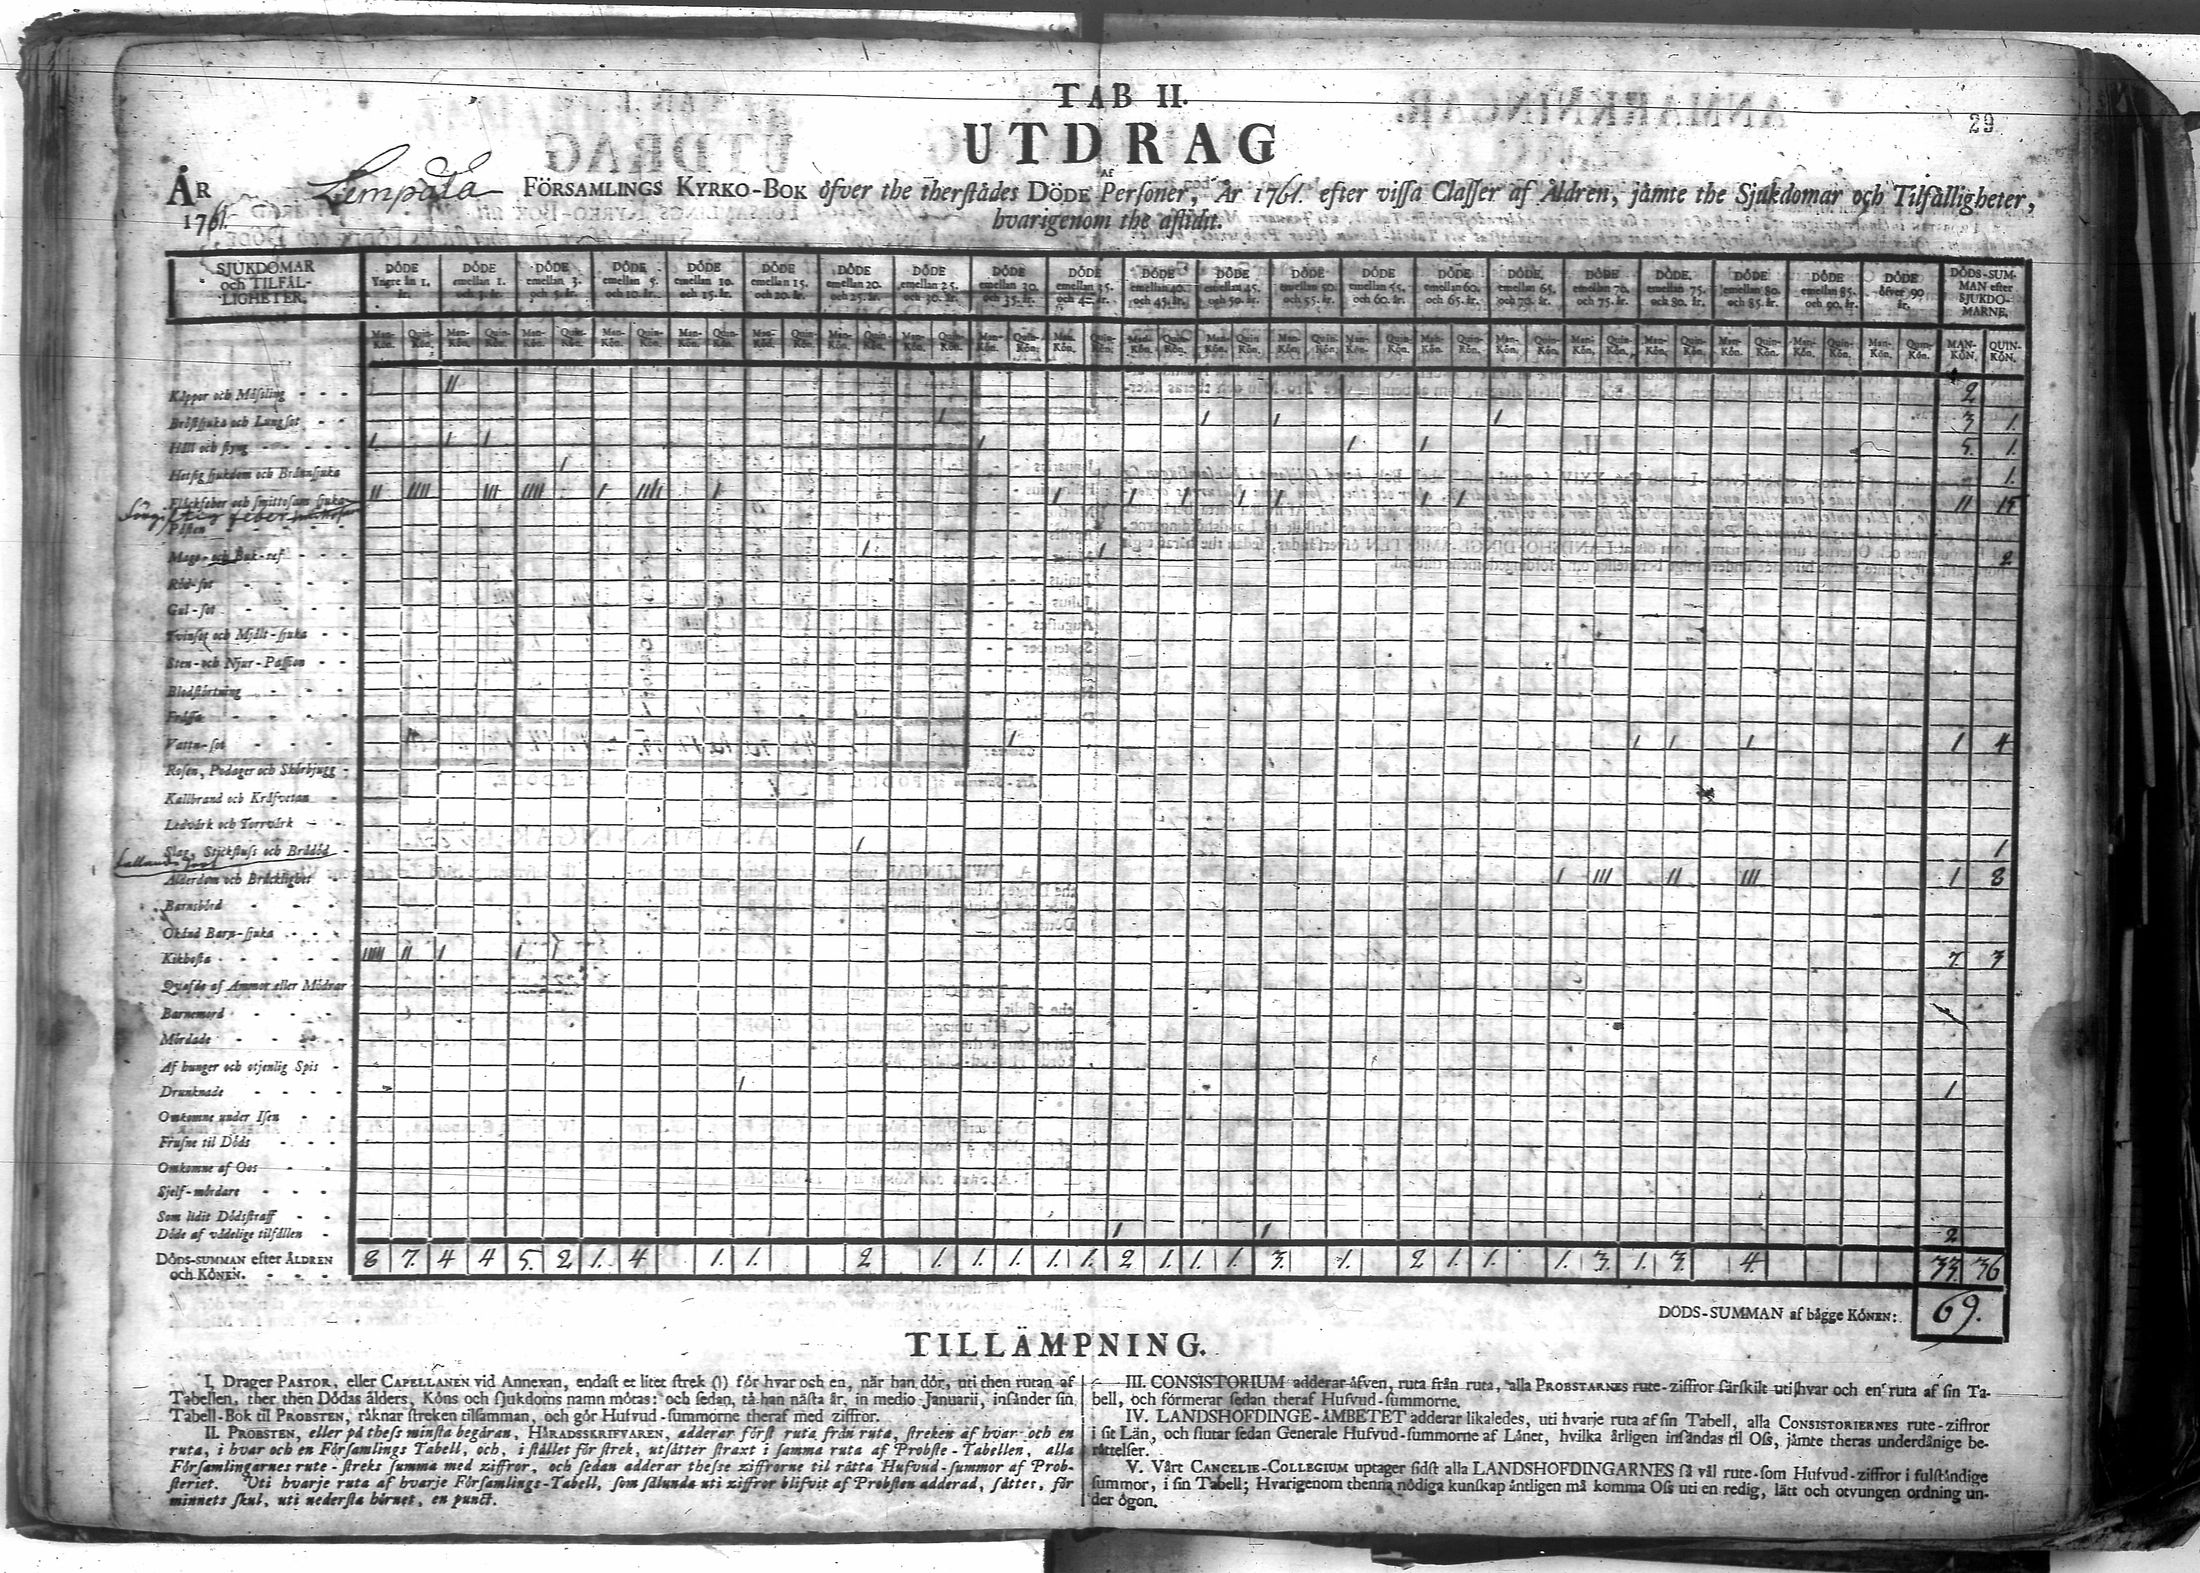 TAB II.
29
UTDRAG
AF
ÅR Lempåla FÖRSAMLINGS KYRKO-BOK öfver the therstädes DÖDE Personer, År 1761. efter vissa Classer af Åldren, jämte the Sjukdomar och Tilfälligheter,
1761. hvarigenom the aflidit.
SJUKDOMAR och TILFÄL-LIGHETER. DÖDE Yngre än 1. år. DÖDE emellan 1. och 3. år. DÖDE emellan 3. och 5. år. DÖDE emellan 5. och 10. år. DÖDE emellan 10. och 15. år. DÖDE emellan 15. och 20. år. DÖDE emellan 20. och 25. år. DÖDE emellan 25. och 30. år. DÖDE emellan 30. och 35. år. DÖDE emellan 35. och 4 år. DÖDE emellan 40. och 45. år. DÖDE emellan 45. och 50. år. DÖDE emellan 50. och 55. år. DÖDE emellan 55. och 60. år. DÖDE emellan 60. och 65. år. DÖDE emellan 65. och 70. år. DÖDE emellan 70. och 75. år. DÖDE emellan 75. och 80. år. DÖDE emellan 80. och 85. år. DÖDE emellan 85. och 90. år. DÖDE öfver 90 år. DÖDS-SUM-MAN efter SJUKDO-MARNE.
Man-Kön. Quin-Kön. Man-Kön. Quin-Kön. Man-Kön. Quin-Kön. Man-Kön. Quin-Kön. Man-Kön. Quin-Kön. Man-Kön. Quin-Kön. Man-Kön. Quin-Kön. Man-Kön. Quin-Kön. Man-Kön. Quin-Kön. Man-Kön. Quin-Kön. Man-Kön. Quin-Kön. Man-Kön. Quin-Kön. Man-Kön. Quin-Kön. Man-Kön. Quin-Kön. Man-Kön. Quin-Kön. Man-Kön. Quin-Kön. Man-Kön. Quin-Kön. Man-Kön. Quin-Kön. Man-Kön. Quin-Kön. Man-Kön. Quin-Kön. Man-Kön. Quin-Kön. MAN-KÖN. QUIN-KÖN.
Koppor och Mässling - - - // 2
Bröstsjuka och Lungsot - - / / / / 3 1.
Håll och styng - - - - / / / / / / 5. 1.
Hetsig sjukdom och Brännsjuka / 1.
Fläckfeber och smittosam sjuka // //// /// //// / //// / / / / / / / / 11 15
feber
Pästen - - - -
Mage- och Buk-ref - - / / 2
Röd-sot - - - -
Gul-sot - - - -
Tvinsot och Mjält-sjuka - -
Sten- och Njur-Passion - -
Blodstörtning - - -
Frässa - - - -
Vattu-sot - - - // / / / / 1 4
Rosen, Podager och Skörbjugg -
Kallbrand och Kräfvetan -
Ledvärk och Torrvärk - -
Slag, Stickfluss och Brådöd - / 1
Ålderdom och Bräcklighet - / /// // /// 1 8
Barnsbörd - - -
Okänd Barn-sjuka - - -
Kikhosta - - - - ///// // / / / 7. 3
Quafde af Ammor eller Mödrar
Barnemord - - - -
Mördade - - - -
Af hunger och otjenlig Spis -
Drunknade - - - / 1
Omkomne under Isen - -
Frusne til Döds - - -
Omkomne af Oos - -
Sjelf-mördare - - -
Som lidit Dödsstraff - -
Döde af vådelige tilfällen - / / 2
DÖDS-SUMMAN efter ÅLDREN och KÖNEN. - - - 8 7. 4 4 5. 2 1. 4 1. 1. 2 1. 1. 1. 1. 1. 2 1. 1. 1. 3. 1. 2 1. 1. 1. 3. 1. 3. 4. 33 36
DÖDS-SUMMAN af bägge KÖNEN: 69.
TILLÄMPNING.
I. Drager PASTOR, eller CAPELLANEN vid Annexan, endast et litet strek (1) för hvar och en, när han dör, uti then rutan af
Tabellen, ther then Dödas ålders, Köns och sjukdoms namn mötas: och sedan, tå han nästa år, in medio Januarii, insänder sin
Tabell-Bok til PROBSTEN, räknar streken tilsamman, och gör Hufvud-summorne theraf med ziffror.
II. PROBSTEN, eller på thess minsta begäran, HÄRADSSKRIFVAREN, adderar först ruta från ruta, streken af hvar och en
ruta, i hvar och en Församlings Tabell, och, i stället för strek, utsätter straxt i samma ruta af Probste-Tabellen, alla
Församlingarnes rute-streks summa med ziffror, och sedan adderar thesse ziffrorne til rätta Hufvud-summor af Prob-
steriet. Uti hvarje ruta af hvarje Församlings-Tabell, som sålunda uti ziffror blifvit af Probsten adderad, sättes, för
minnets skul, uti nedersta hörnet, en punct.
III. CONSISTORIUM adderar äfven, ruta från ruta, alla PROBSTARNES rute-ziffror särskilt uti hvar och en ruta af sin Ta-
bell, och förmerar sedan theraf Hufvud-summorne.
IV. LANDSHÖFDINGE-ÄMBETET adderar likaledes, uti hvarje ruta af sin Tabell, alla CONSISTORIERNES rute-ziffror
i sit Län, och slutar sedan Generale Hufvud-summorne af Länet, hvilka årligen insändas til Oss, jämte theras underdånige be-
rättelser.
V. Vårt CANCELIE-COLLEGIUM uptager sidst alla LANDSHÖFDINGARNES så väl rute-som Hufvud-ziffror i fulständige
summor, i sin Tabell; Hvarigenom thenna nödiga kunskap äntligen må komma Oss uti en redig, lätt och otvungen ordning un-
der ögon.